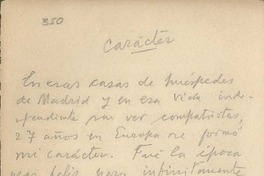 350
Carácter
En esas casas de huéspedes
de Madrid y en esa vida inde-
pendiente sin ver compatriotas,
27 años en Europa se formó
mi carácter. Fué la época
mas feliz pero infinitamente